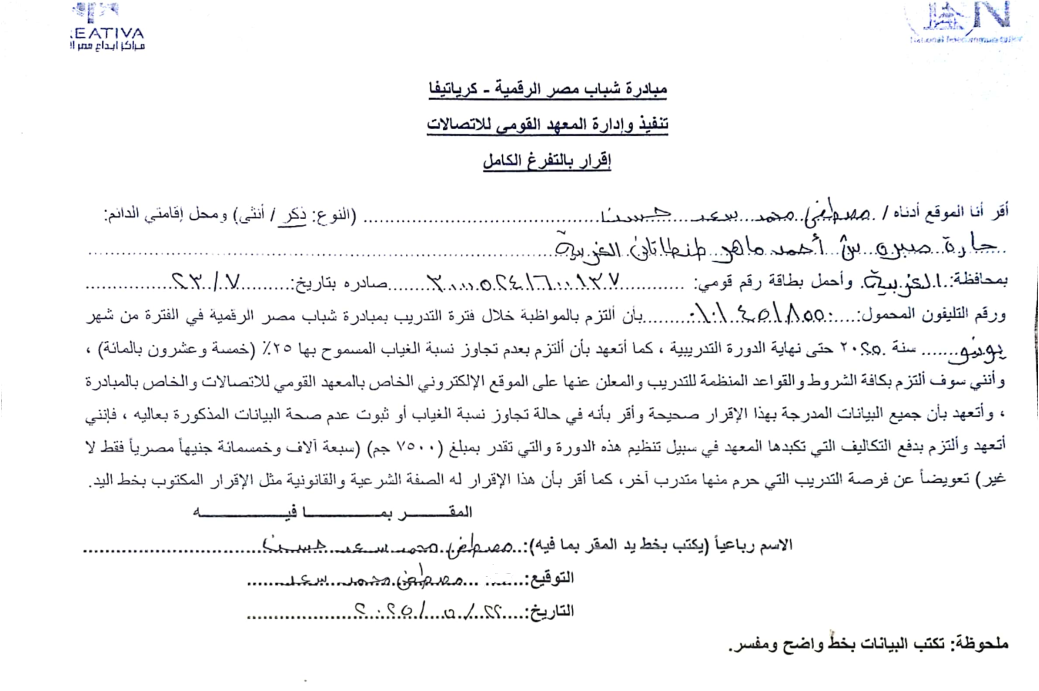 EATIVA
مراكز إبداع مصر ال
National Telecommunication
مبادرة شباب مصر الرقمية - كرياتيفا
تنفيذ وإدارة المعهد القومي للاتصالات
إقرار بالتفرغ الكامل
أقر أنا الموقع أدناه / مصطفى محمد سعد حسن (النوع: ذكر / أنثى) ومحل إقامتي الدائم:
حارة صبرى ش أحمد ماهر الغربية
بمحافظة: الغربية وأحمل بطاقة رقم قومي: صادره بتاريخ: ٢٣/٧
ورقم التليفون المحمول: ٠١٠١٤٥١٨٥٥٠ بأن ألتزم بالمواظبة خلال فترة التدريب بمبادرة شباب مصر الرقمية في الفترة من شهر
يونيو سنة ٢٠٢٥ حتى نهاية الدورة التدريبية ، كما أتعهد بأن ألتزم بعدم تجاوز نسبة الغياب المسموح بها ٢٥٪ (خمسة وعشرون بالمائة) ،
وأنني سوف ألتزم بكافة الشروط والقواعد المنظمة للتدريب والمعلن عنها على الموقع الإلكتروني الخاص بالمعهد القومي للاتصالات والخاص بالمبادرة
، وأتعهد بأن جميع البيانات المدرجة بهذا الإقرار صحيحة وأقر بأنه في حالة تجاوز نسبة الغياب أو ثبوت عدم صحة البيانات المذكورة بعاليه ، فإنني
أتعهد وألتزم بدفع التكاليف التي تكبدها المعهد في سبيل تنظيم هذه الدورة والتي تقدر بمبلغ (٧٥٠٠ جم) (سبعة آلاف وخمسمائة جنيهاً مصرياً فقط لا
غير) تعويضاً عن فرصة التدريب التي حرم منها متدرب آخر، كما أقر بأن هذا الإقرار له الصفة الشرعية والقانونية مثل الإقرار المكتوب بخط اليد.
المقـــر بمـــا فيـــه
الاسم رباعياً (يكتب بخط يد المقر بما فيه): مصطفى محمد سعد حسن
التوقيع: مصطفى محمد سعد
التاريخ: ٢٢/٥/٢٠٢٥
ملحوظة: تكتب البيانات بخط واضح ومفسر.